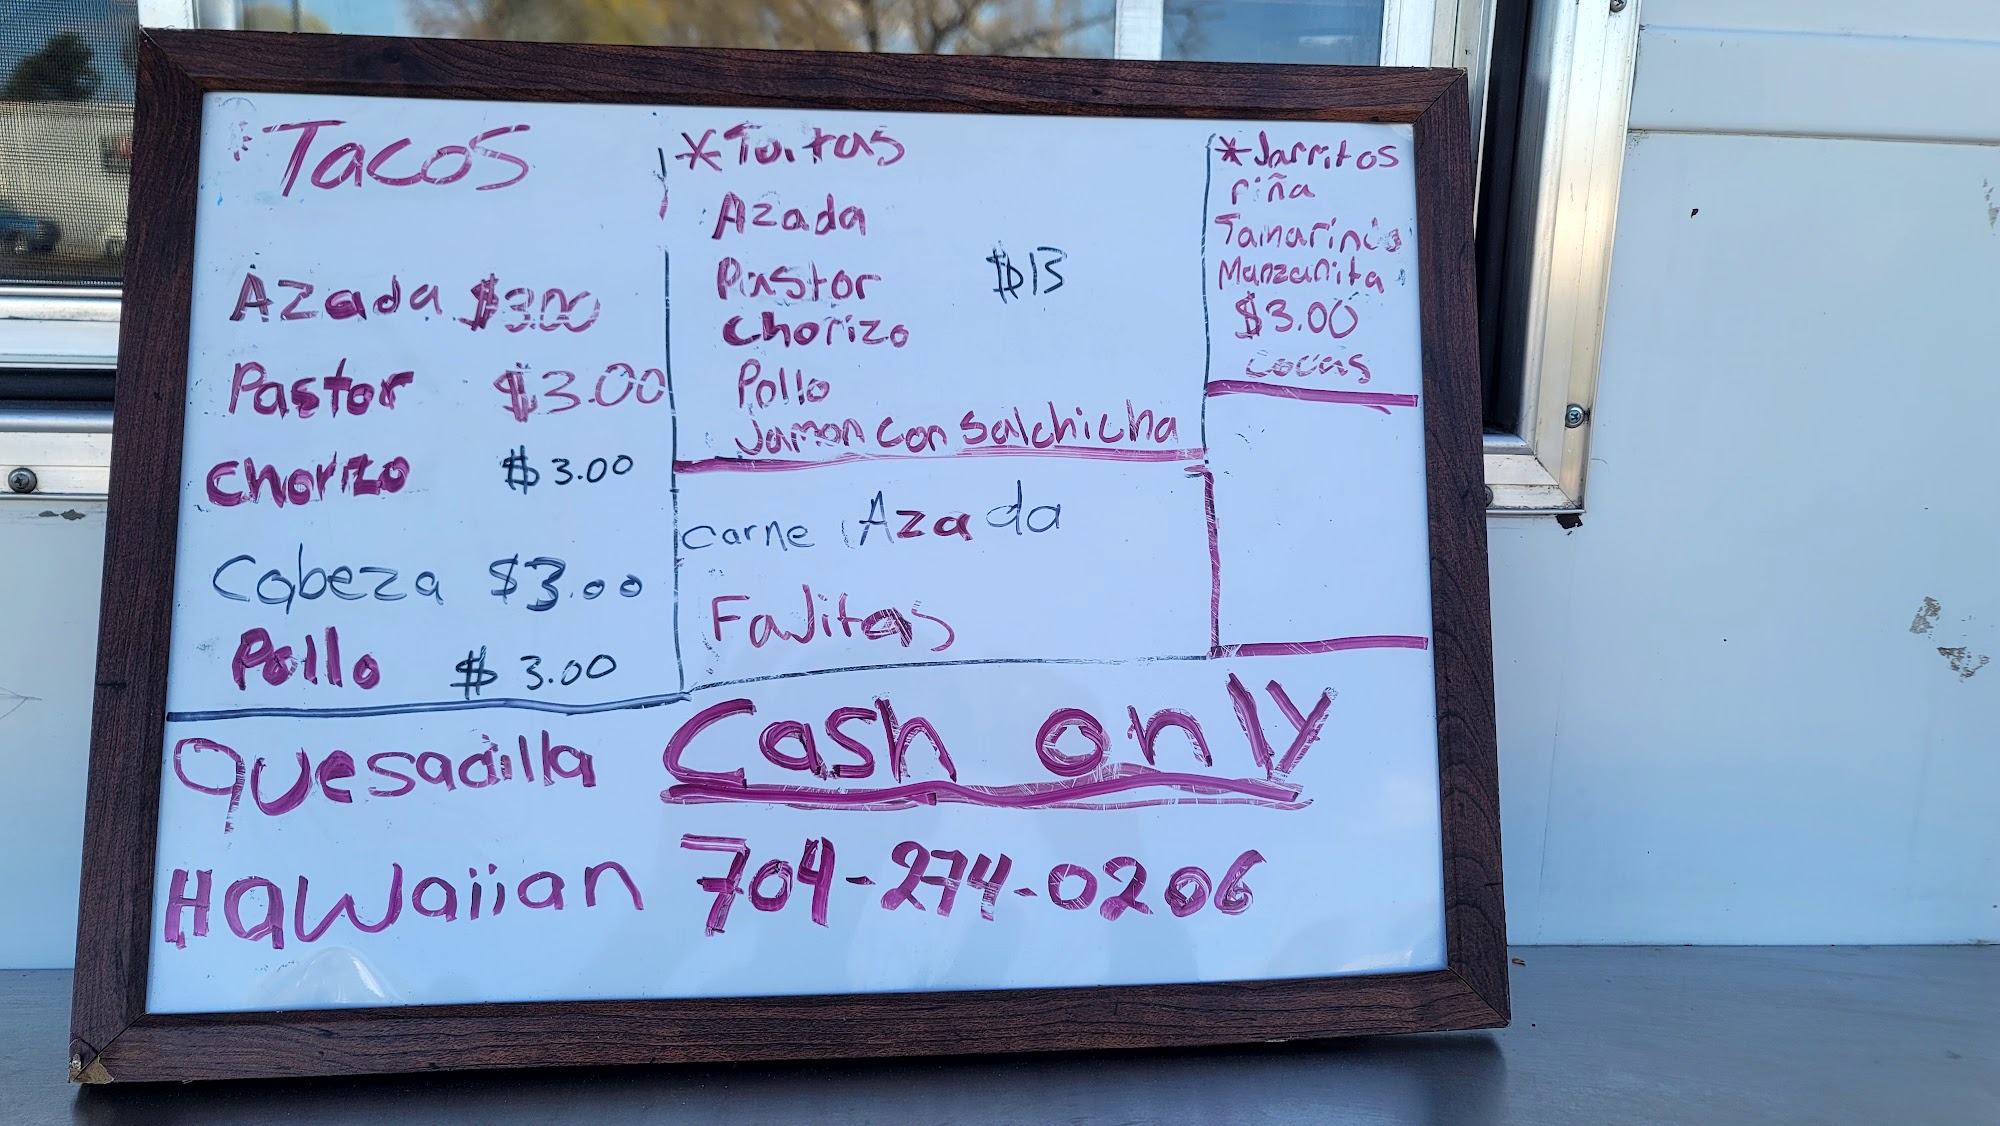 * Tacos
Azada $3.00
Pastor $3.00
Chorizo $3.00
Cabeza $3.00
Pollo $3.00
* Tortas
Azada
Pastor $13
Chorizo
Pollo
Jamon con Salchicha
carne Azada
Fajitas
* Jarritos
Piña
Tamarindo
Manzanita
$3.00
Cocas
Quesadilla
Hawaiian
Cash only
704-274-0206